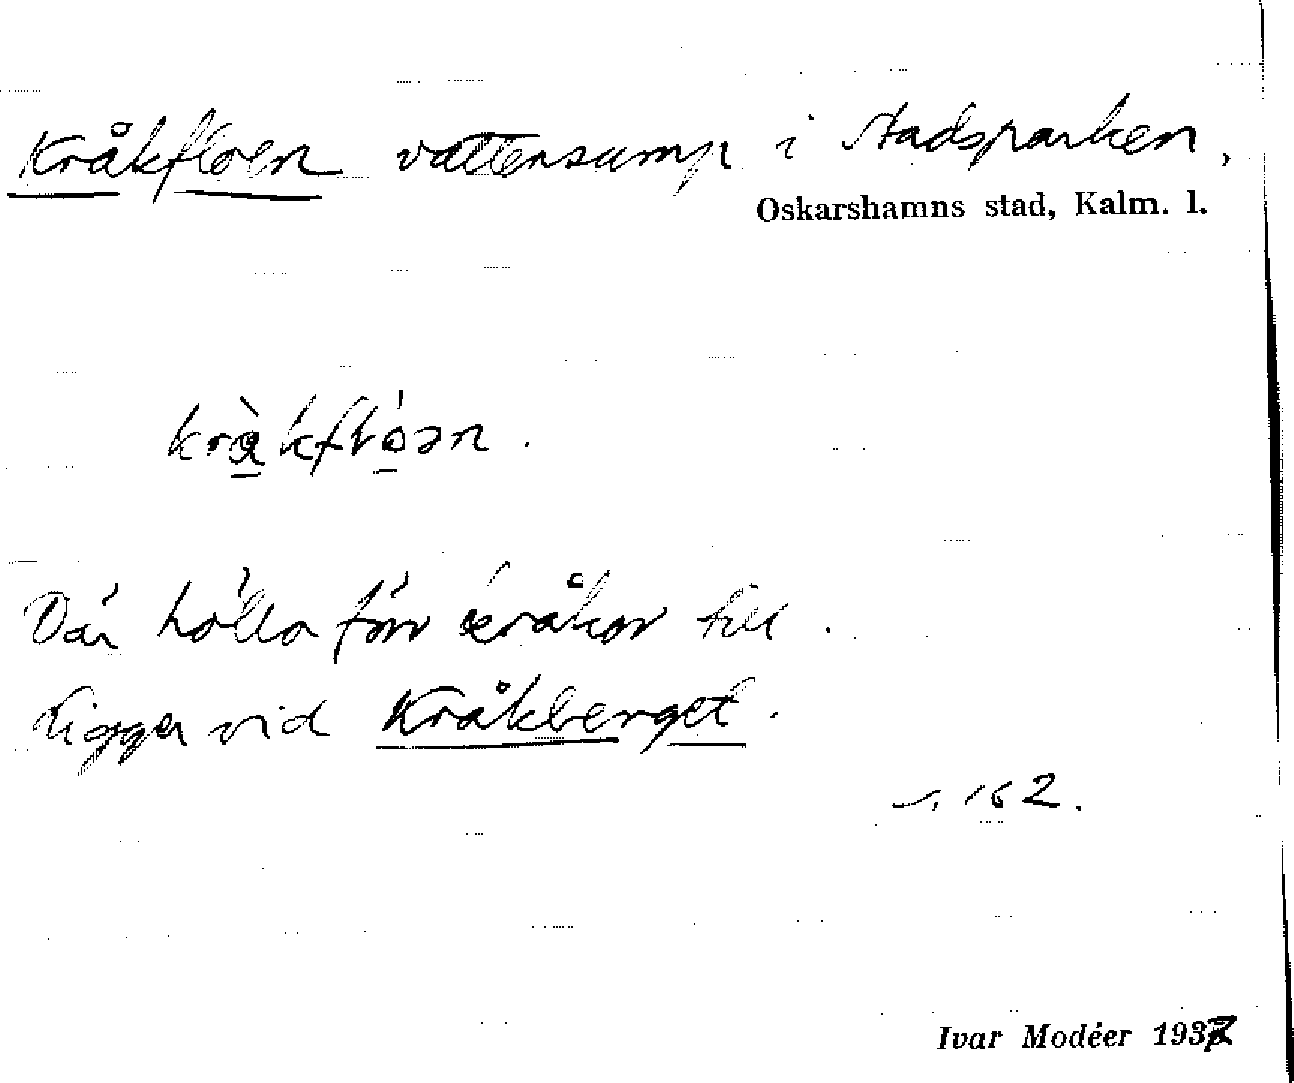 Kråkfloen vattensamp i Stadsparken,
Oskarshamns stad, Kalm. l.
kràkflóən.
Där höllo förr kråkor till.
Ligger vid Kråkberget.
s. 162.
Ivar Modéer 1937